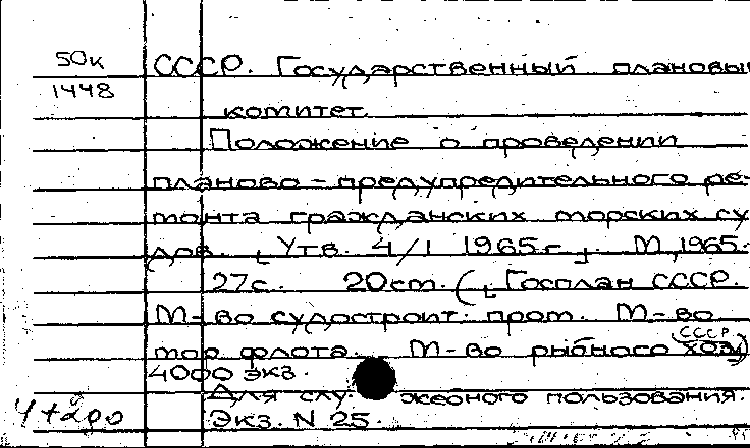 50к
1448
СССР. Государственный плановый
комитет.
Положение о проведении
планово-предупредительного ре-
монта гражданских морских су
дов. [Утв. 4/I 1965г.]. М., 1965.
27с. 20см. ([Госплан СССР.
М-во судостроит. пром. М-во
мор флота. М-во рыбного хоз.
СССР)
4000 экз.
Для слу жебного пользования.
Экз. N 25.